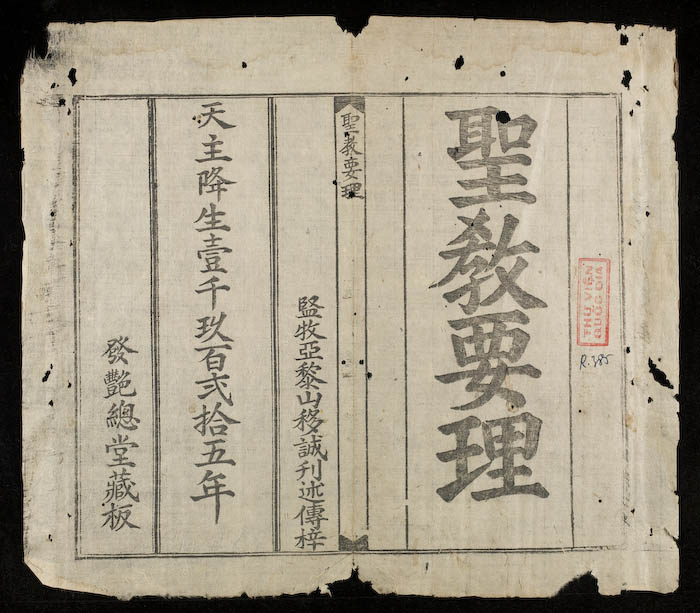 聖教要理
聖教要理
監牧亞黎山移誠刋述傳梓
天主降生壹千玖百弍拾五年
發艶總堂藏板
THƯ VIỆN
QUỐC GIA
R.385